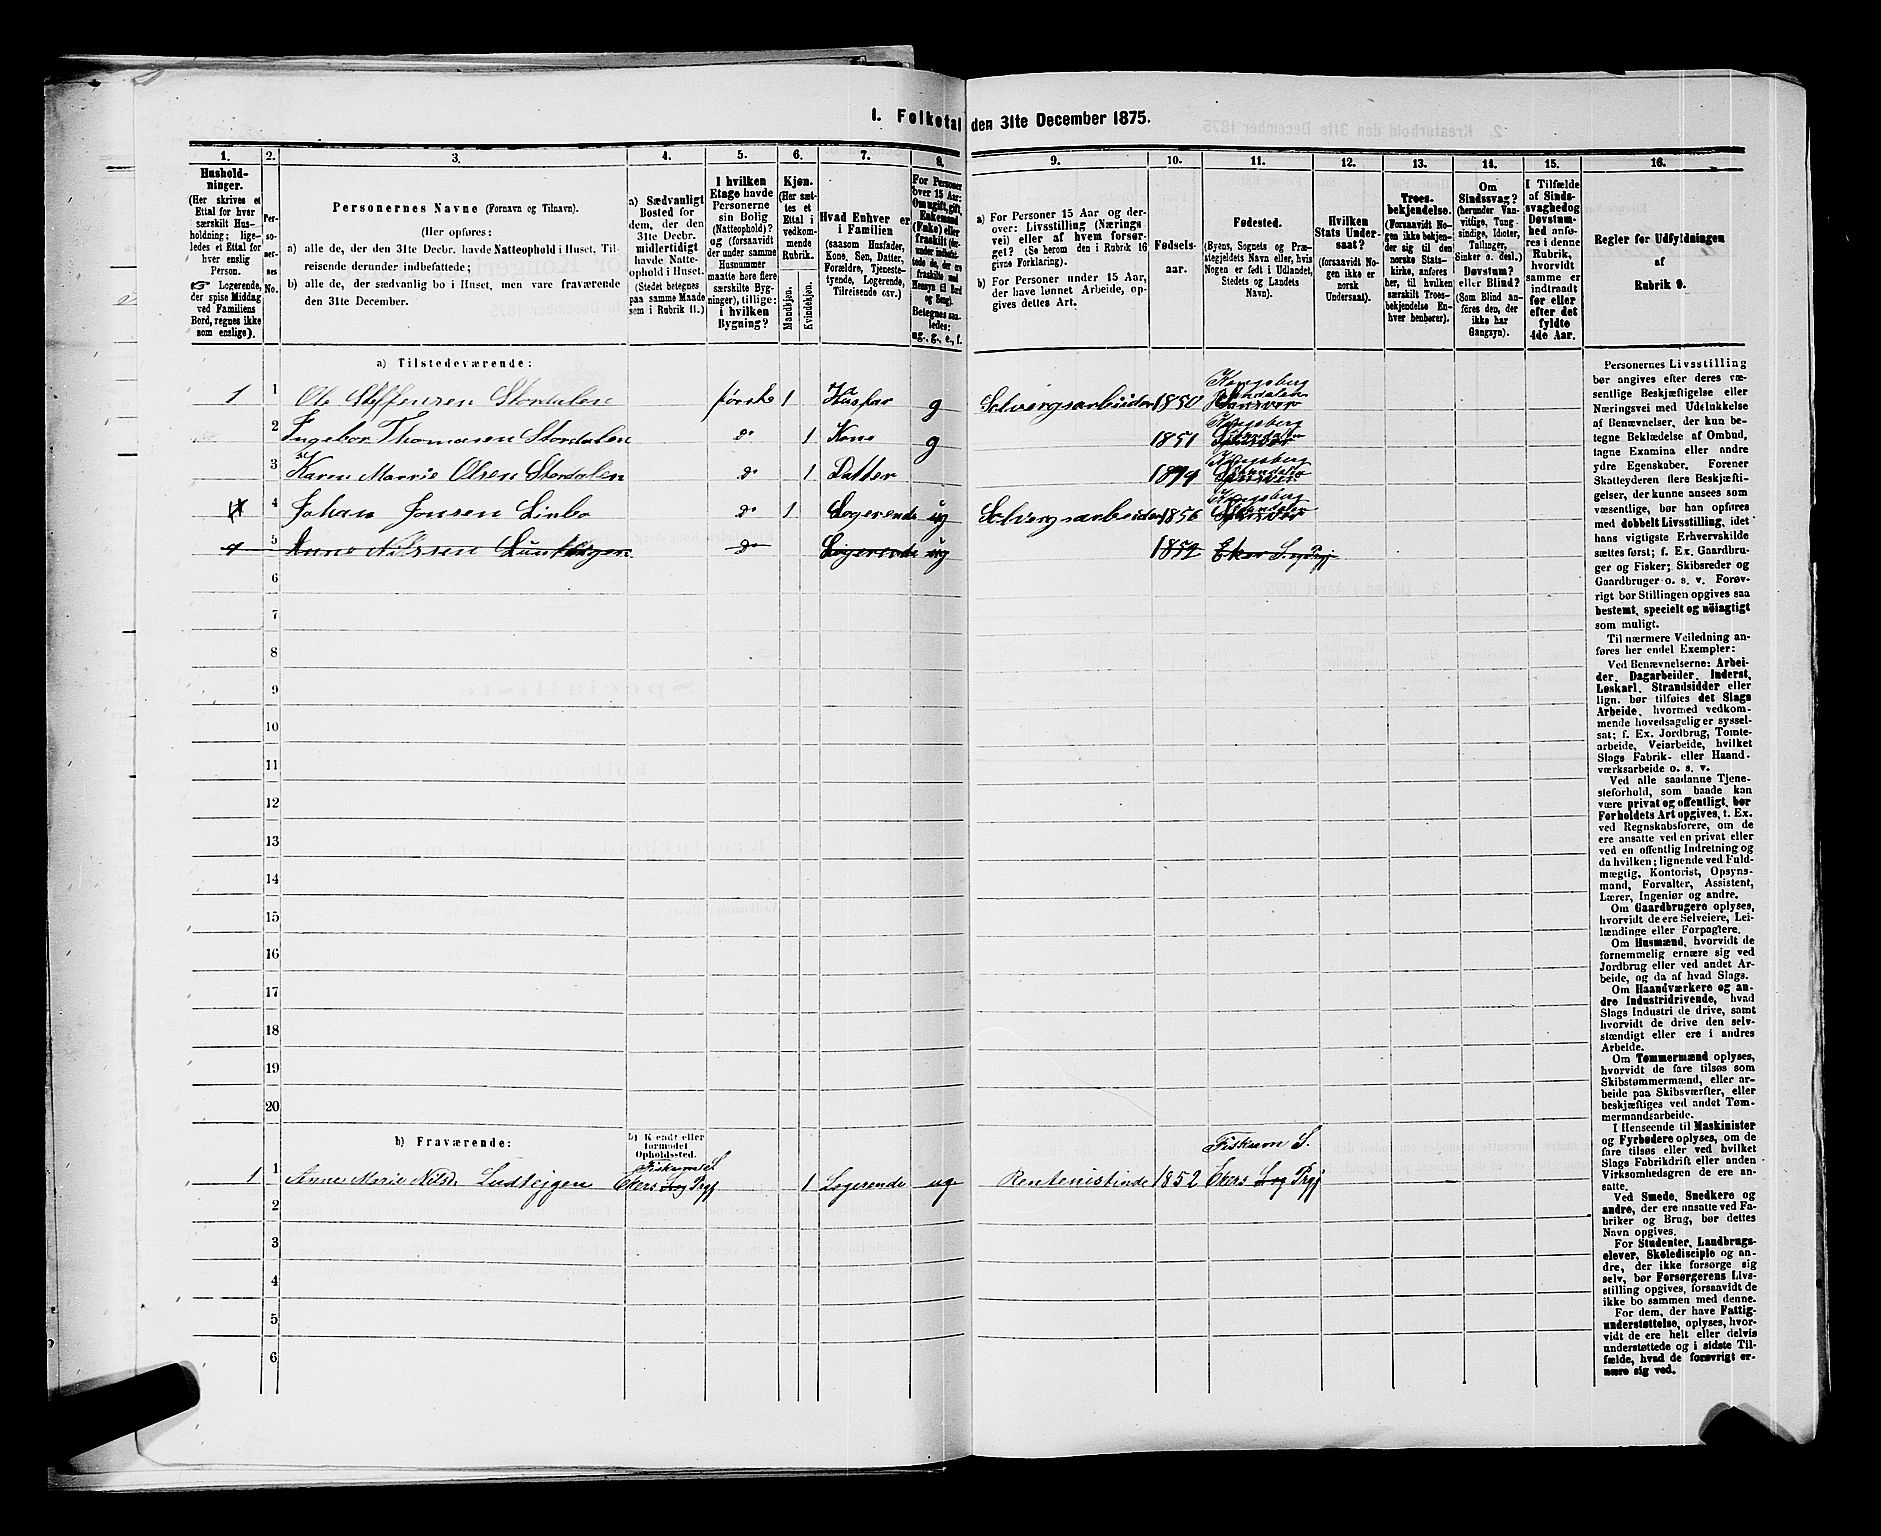 1. Folketal den 31te December 1875.
1. 2. 3. 4. 5. 6. 7. 8. 9. 10. 11. 12. 13. 14. 15. 16.
Hushold-
ninger.
(Her skrives et
Ettal for hver
særskilt Hus-
holdning; lige-
ledes et Ettal for
hver enslig
Person.
☞ Logerende,
der spise Middag
ved Familiens
Bord, regnes ikke
som enslige).
Per-
so-
ner-
nes
No.
Personernes Navne (Fornavn og Tilnavn).
(Her opføres:
a) alle de, der den 31te Decbr. havde Natteophold i Huset, Til-
reisende derunder indbefattede;
b) alle de, der sædvanlig bo i Huset, men vare fraværende
den 31te December.
a) Sædvanligt
Bosted for
dem, der den
31te Decbr.
midlertidigt
havde Natte-
ophold i Huset.
(Stedet betegnes
paa samme Maade
som i Rubrik 11.)
I hvilken
Etage havde
Personerne
sin Bolig
(Natteophold)?
og (forsaavidt
der under samme
Husnummer
maatte høre flere
særskilte Byg-
ninger), tillige:
i hvilken
Bygning?
Kjøn.
(Her sæt-
tes et
Ettal i
vedkom-
mende
Rubrik.
Mandkjøn.
Kvindekjøn.
Hvad Enhver er
i Familien
(saasom Husfader,
Kone, Søn, Datter,
Forældre, Tjeneste-
tyende, Logerende,
Tilreisende osv.)
For Personer
over 15 Aar:
Om ugift, gift,
Enkemand
(Enke) eller
fraskilt
Betegnes saa-
ledes:
ug., g., e., f.
a) For Personer 15 Aar og der-
over: Livsstilling (Nærings
vei) eller af hvem forsør-
get? (Se herom den i Rubrik 16
givne Forklaring).
b) For Personer under 15 Aar,
der have lønnet Arbeide, op-
gives dettes Art.
Fødsels-
aar.
Fødested.
(Byens, Sognets og Præ-
stegjeldets Navn eller, hvis
Nogen er født i Udlandet,
Stedets og Landets
Navn).
Hvilken
Stats Under-
saat?
(forsaavidt No-
gen ikke er
norsk
Undersaat).
Troes-
bekjendelse.
(Forsaavidt No-
gen ikke bekjen-
der sig til den
norske Stats-
kirke, anføres
her, til hvilken
særskilt Troes-
bekjendelse En-
hver henhører).
Om
Sindssvag?
(herunder Van-
vittige, Tung-
sindige, Idioter,
Tullinger,
Sinker o. desl.)
Døvstum?
eller Blind?
(Som Blind an-
føres den, der
ikke har
Gangsyn).
I Tilfælde
af Sinds-
svaghed og
Døvstum-
hed anfø-
res i denne
Rubrik,
hvorvidt
samme er
indtraadt
før eller
efter det
fyldte
4de Aar.
Regler for Udfyldningen
af
Rubrik 9.
a) Tilstedeværende:
1 1 Ole Steffensen Stordalen første 1 Husfar g Sølvergsarbeider 1850 Kongsberg
2 Ingebor Thomasen Stordalen do 1 Kone g 1851 Kongsberg
3 Karen Marrie Olsen Stordalen do 1 Datter 1874 Kongsberg
4 Johan Jonsen Linbo do 1 Logerende ug Sølvergsarbeider 1856 Kongsberg
1 5 Anne Nilssen do Logerende ug 1852 Eker S. og Prgj
6
7
8
9
10
11
12
13
14
15
16
17
18
19
20
b) Fraværende:
b) Kjendt eller
formodet
Opholdssted.
Fiskum S. Fiskum S.
1 1 Anne Marie Nilsn Ludteigen Ekers Sog Prgj 1 Logerende ug Rentenistinde 1852 Ekers Sog Prgj
2
3
4
5
6
Personernes Livsstilling
bør angives efter deres væ-
sentlige Beskjæftigelse eller
Næringsvei med Udelukkelse
af Benævnelser, der kun be-
tegne Beklædelse af Ombud,
tagne Examina eller andre
ydre Egenskaber. Forener
Skatteyderen flere Beskjæfti-
gelser, der kunne ansees som
væsentlige, bør han opføres
med dobbelt Livsstilling, idet
hans vigtigste Erhvervskilde
sættes først; f. Ex. Gaardbru-
ger og Fisker; Skibsreder og
Gaardbruger o. s. v. Forøv-
rigt bør Stillingen opgives saa
bestemt, specielt og nøiagtigt
som muligt.
Til nærmere Veiledning an-
føres her endel Exempler:
Ved Benævnelserne: Arbei-
der, Dagarbeider, Inderst,
Løskarl, Strandsidder eller
lign. bør tilføies det Slags
Arbeide, hvormed vedkom-
mende hovedsagelig er syssel-
sat; f. Ex. Jordbrug, Tomte-
arbeide, Veiarbeide, hvilket
Slags Fabrik- eller Haand-
værksarbeide o. s. v.
Ved alle saadanne Tjene-
steforhold, som baade kan
være privat og offentligt, bør
Forholdets Art opgives, t. Ex.
ved Regnskabsførere, om de
ere ansatte ved en privat eller
ved en offentlig Indretning og
da hvilken; lignende ved Fuld-
mægtig, Kontorist, Opsyns-
mand, Forvalter, Assistent,
Lærer, Ingeniør og andre.
Om Gaardbrugere oplyses,
hvorvidt de ere Selveiere, Lei-
lændinge eller Forpagtere.
Om Husmænd, hvorvidt de
fornemmelig ernære sig ved
Jordbrug eller ved andet Ar-
beide, og da af hvad Slags.
Om Haandværkere og an-
dre Industridrivende, hvad
Slags Industri de drive, samt
hvorvidt de drive den selv-
stændigt eller ere i andres
Arbeide.
Om Tømmermænd oplyses,
hvorvidt de fare tilsøs som
Skibstømmermænd, eller ar-
beide paa Skibsværfter, eller
beskjæftiges ved andet Tøm-
mermandsarbeide.
I Henseende til Maskinister
og Fyrbødere oplyses, om de
fare tilsøs eller ved hvilket
Slags Fabrikdrift eller anden
Virksomhedsgren de ere an-
satte.
Ved Smede, Snedkere og
andre, der ere ansatte ved Fa-
briker og Brug, bør dettes
Navn opgives.
For Studenter, Landbrugs-
elever, Skoledisciple og an-
dre, der ikke forsørge sig
selv, bør Forsørgerens Livs-
stilling opgives, forsaavidt de
ikke bo sammen med denne.
For dem, der have Fattig-
understøttelse, oplyses, hvor-
vidt de ere helt eller delvis
understøttede og i sidste Til-
fælde, hvad de forøvrigt er-
nære sig ved.